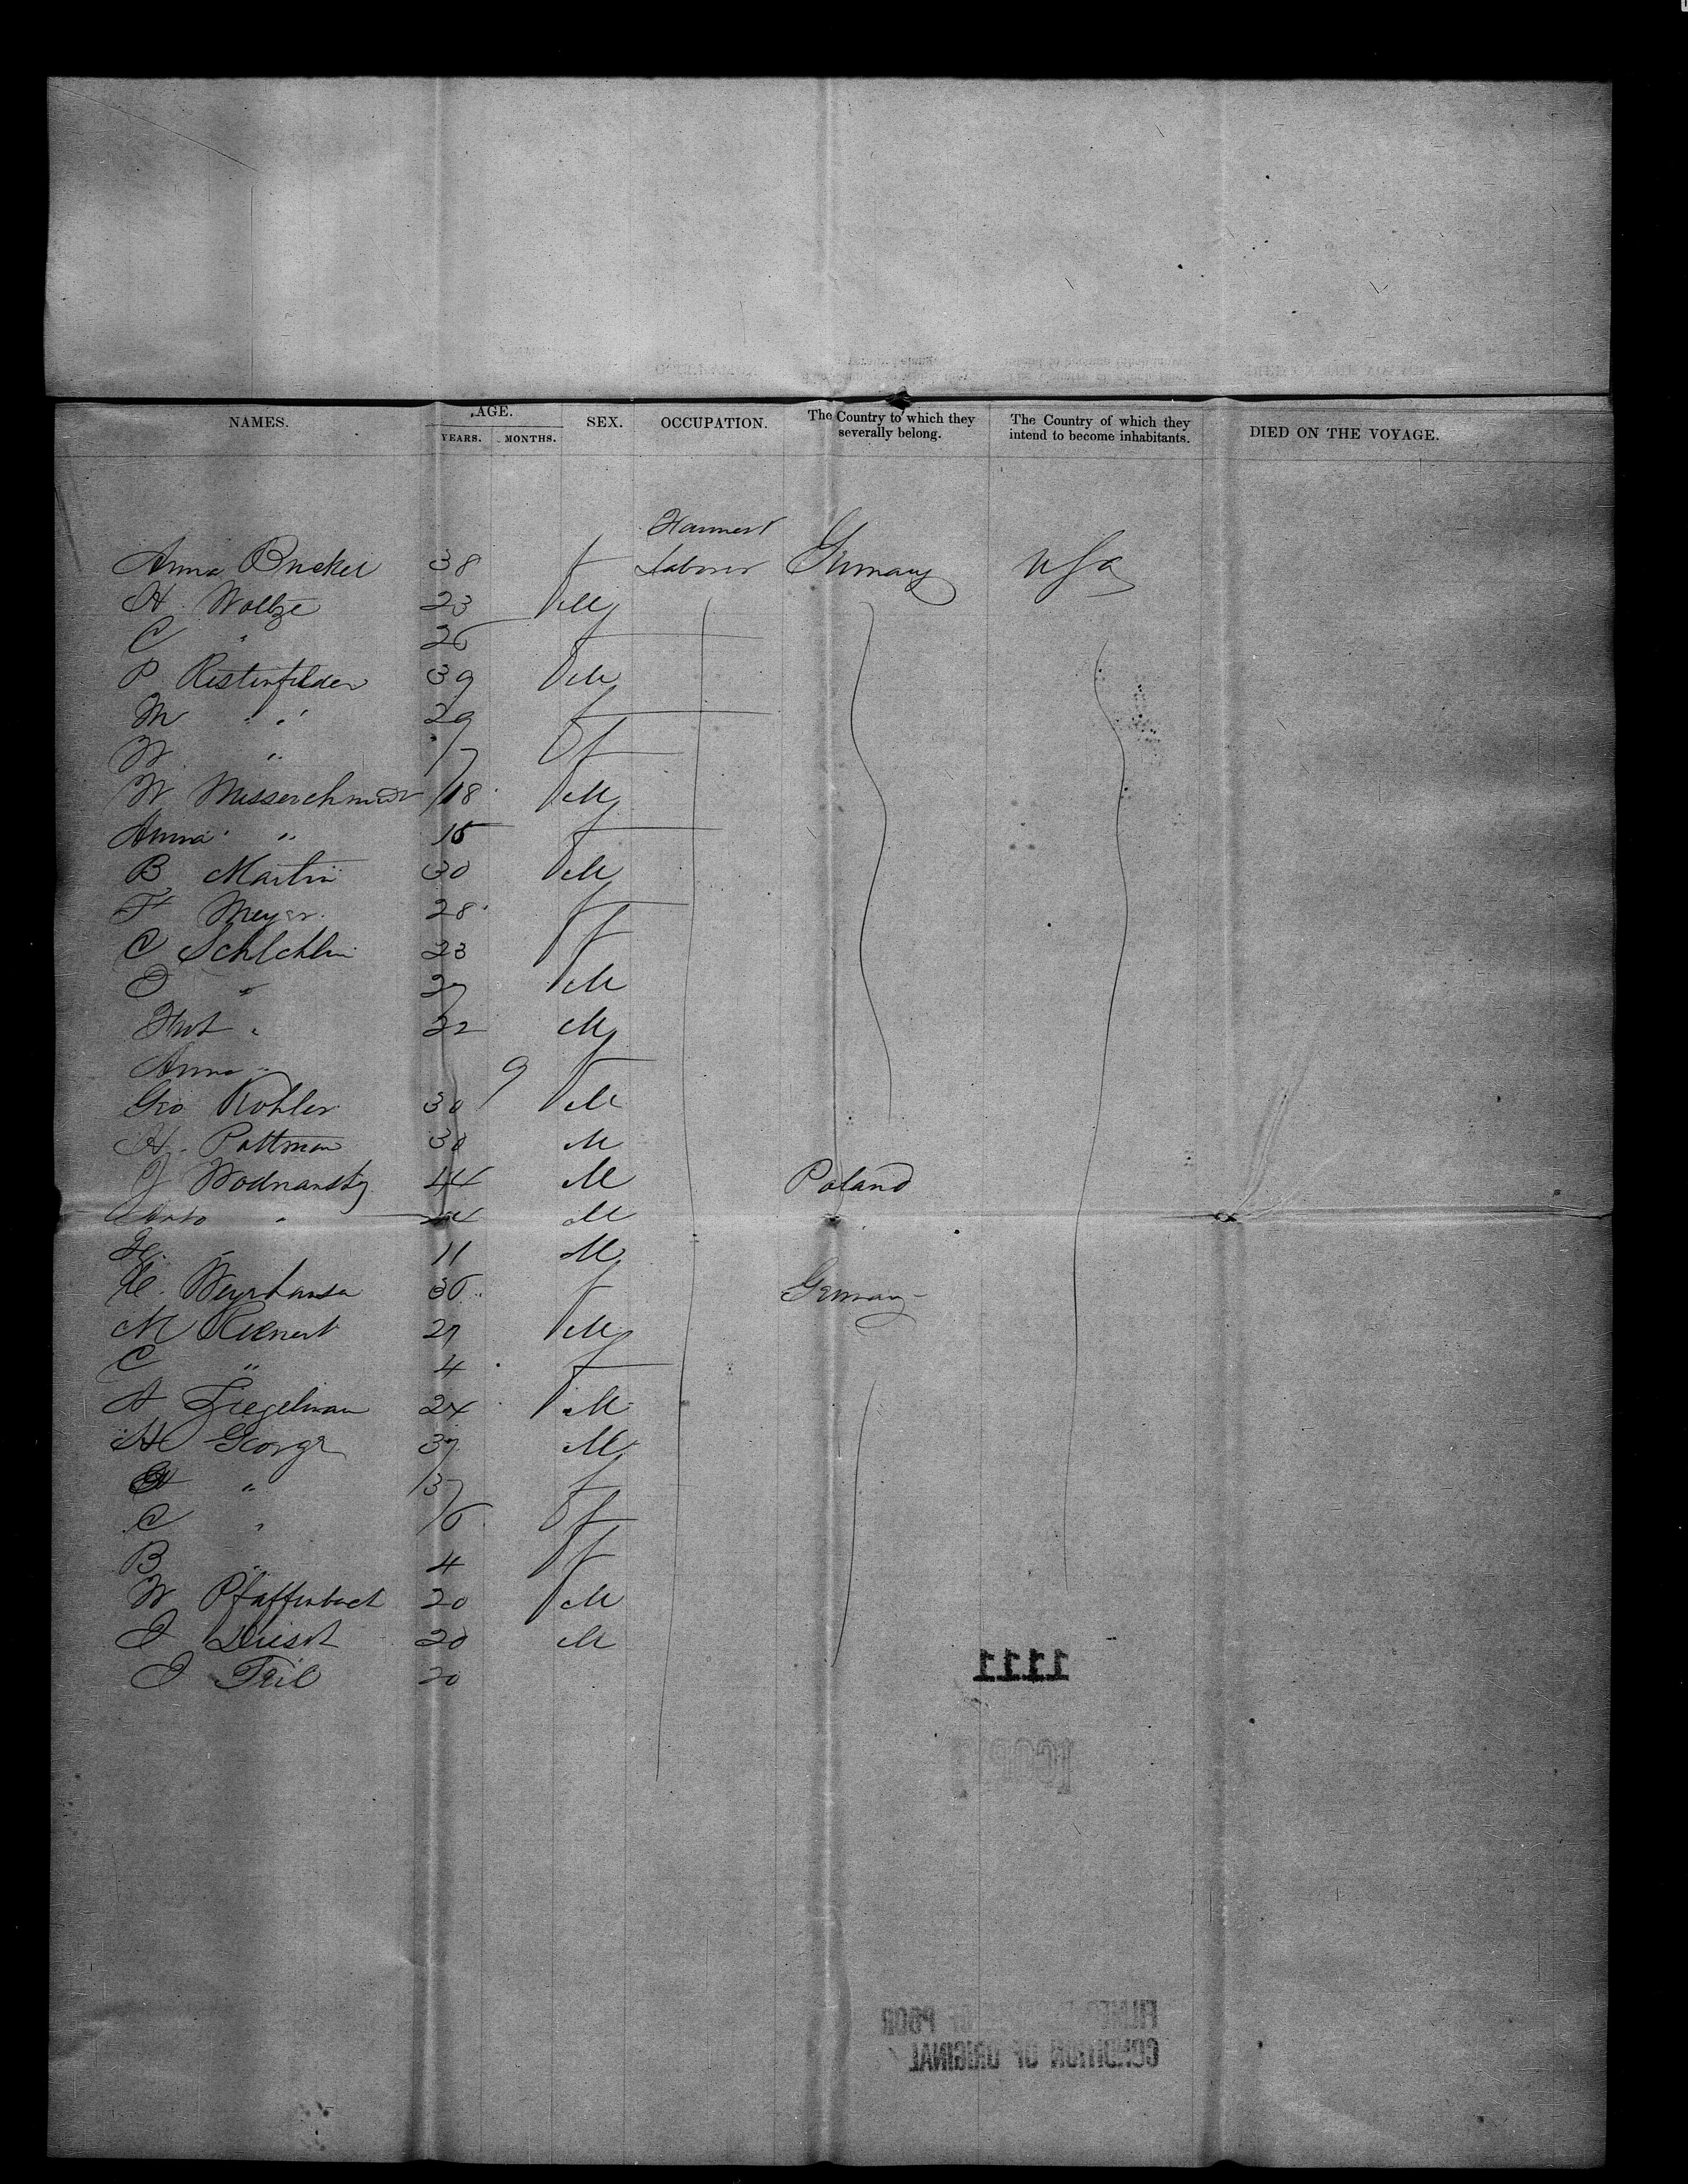 NAMES. AGE. SEX. OCCUPATION. The Country to which they severally belong. The Country of which they intend to become inhabitants. DIED ON THE VOYAGE.
YEARS. MONTHS.
Farmers
Anna Bucker 38 f Laborer Germany USA
H. Woltze 23 M
C " 26 f
P Ristinfilder 39 M
M " 29 f
W " 17 f
W Messerchmidt 18 M
Anna " 15 f
B Martin 30 M
F Meyer 28 f
C Schlchlin 23 f
O " 27 M
" 22 M
Anna " 9 f
Geo Kohler 30 M
H. Pattman 30 M
J Wodnansky 44 M Poland
" 24 M
" 11 M
Weyrhausn 36 f Germany
M Rienert 27 M
C " 4 f
A Ziegelman 24 M
H George 37 M
" 37 f
C " 16 f
B " 4 f
W Pfaffenbach 20 M
J 20 M
J Feil 20
1111
COPY
FILMED POOR
CONDITION OF ORIGINAL